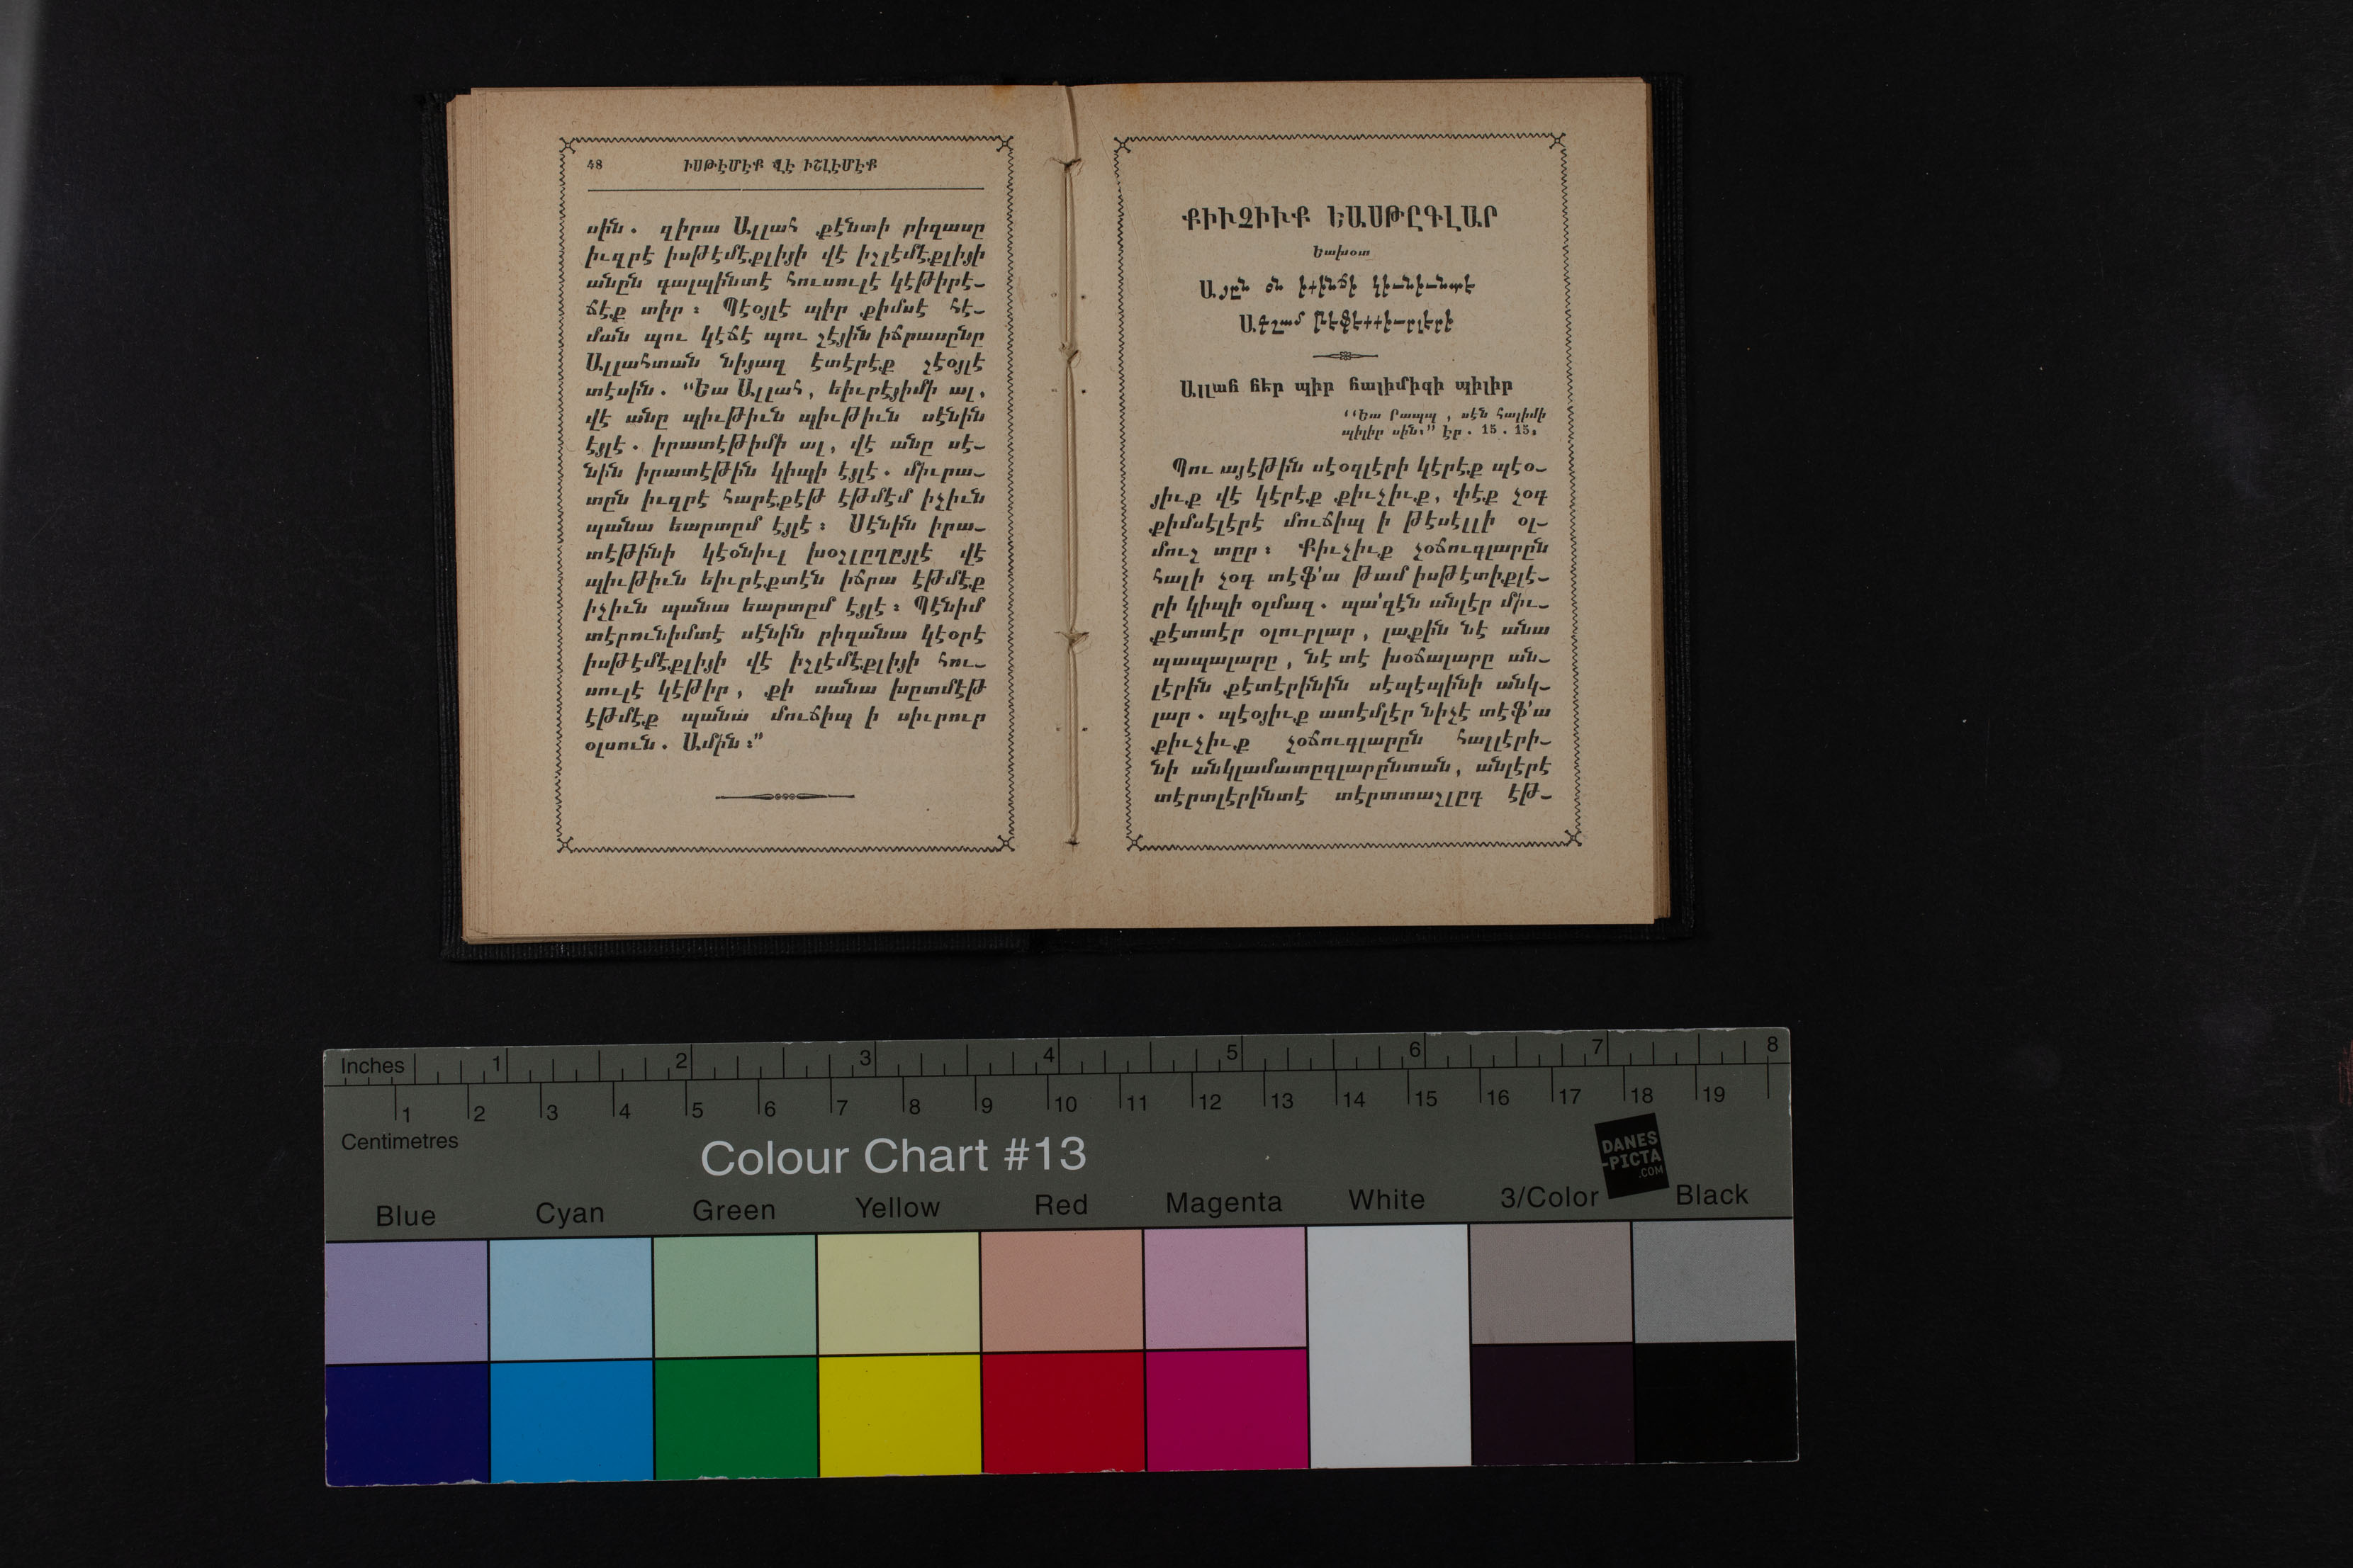 48
ԻՍԹԷՄԷՔ ՎԷ ԻՇԼԷՄԷՔ
սին. զիրա Ալլահ քէնտի րիզասը
իւզրէ իսթէմէքլիյի վէ իշլէմէքլիյի
անըն գալպինտէ հուսուլէ կէթիրէ-
ճէք տիր։ Պէօյլէ պիր քիմսէ հէ-
ման պու կէճէ պու շէյին իճրասընը
Ալլահտան նիյազ էտէրէք շէօյլէ
տէսին. “Եա Ալլահ, եիւրէյիմի ալ,
վէ անը պիւթիւն պիւթիւն սէնին
էյլէ. իրատէթիմի ալ, վէ անը սէ-
նին իրատէթին կիպի էյլէ. միւրա-
տըն իւզրէ հարէքէթ էթմէմ իչիւն
պանա եարտըմ էյլէ։ Սէնին իրա-
տէթինի կէօնիւլ խօշլըղըյլէ վէ
պիւթիւն եիւրէքտէն իճրա էթմէք
իչիւն պանա եարտըմ էյլէ։ Պէնիմ
տէրունիմտէ սէնին րիզանա կէօրէ
իսթէմէքլիյի վէ իշլէմէքլիյի հու-
սուլէ կէթիր, քի սանա խըտմէթ
էթմէք պանա մուճիպ ի սիւրուր
օլսուն. Ամին։”
ՔԻՒՉԻՒՔ ԵԱՍԹԸԳԼԱՐ
Եախօտ
Այըն օն իքինճի կիւնիւնտէ
Ագշամ թէֆէքքիւրլէրի
Ալլահ հեր պիր հալիմիզի պիլիր
“Եա Րապպ, սէն հալիմի
պիլիր սին.” Եր. 15. 15։
Պու այէթին սէօզլէրի կէրէք պէօ-
յիւք վէ կէրէք քիւչիւք, փէք չօգ
քիմսէլէրէ մուճիպ ի թէսէլլի օլ-
մուշ տըր։ Քիւչիւք չօճուգլարըն
հալի չօգ տէֆ՚ա թամ իսթէտիքլէ-
րի կիպի օլմազ. պա՛զէն անլէր միւ-
քէտտէր օլուրլար, լաքին նէ անա
պապալարը, նէ տէ խօճալարը ան-
լէրին քէտէրինին սէպէպինի անկ-
լար. պէօյիւք ատէմլէր նիչէ տէֆ՚ա
քիւչիւք չօճուգլարըն հալլէրի-
նի անկլամատըգլարընտան, անլէրէ
տէրտլէրինտէ տէրտտաշլըգ էթ-
Inches 1 2 3 4 5 6 7 8
1 2 3 4 5 6 7 8 9 10 11 12 13 14 15 16 17 18 19
Centimetres
Colour Chart #13
DANES
-PICTA
.COM
Blue Cyan Green Yellow Red Magenta White 3/Color Black